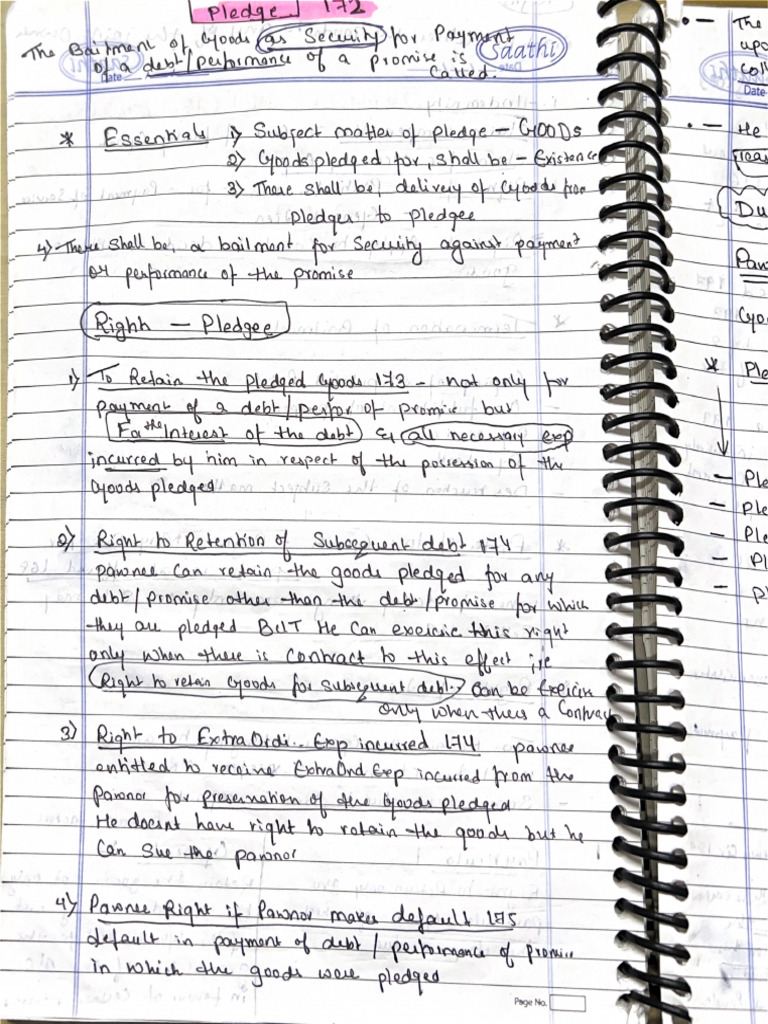 Pledge 172
The Bailment of Goods as Security for Payment
of a debt/performance of a promise is
called.
saathi
Date
* Essentials 1) Subject matter of pledge - GOODs
2) Goods pledged for, shall be - Existence
3) There shall be, delivery of Goods from
Pledger to Pledgee
4) There shall be, a bailment for Security against payment
or performance of the promise
Right - Pledgee
1) To Retain the Pledged Goods 173 - not only for
payment of a debt/perfor of promise but
For the Interest of the debt & all necessary exp
incurred by him in respect of the possession of the
Goods pledged
2) Right to Retention of Subsequent debt 174
pawnee can retain the goods pledged for any
debt/promise other than the debt/promise for which
they are pledged BUT He can exercise this right
only when there is contract to this effect i;e
Right to retain Goods for subsequent debt. Can be Exercise
only when theirs a Contract
3) Right to ExtraOrdi.. Exp incurred 174 pawnee
entitled to receive ExtraOrd Exp incurred from the
Pawnor for preservation of the Goods pledged
He doesnt have right to retain the goods but he
Can Sue the pawnor
4) Pawnee Right if Pawnor makes default 175
default in payment of debt / performance of promise
in which the goods were pledged
Page No.
The
upo
coll
Date
He
Du
Paw
Goo
* Ple
- Ple
- Ple
- Ple
- Pl
- Pl